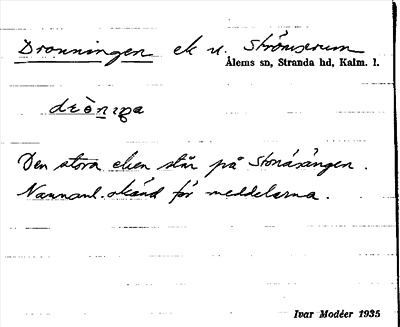 Dronningen ek n. Strömserum
Ålems sn, Stranda hd, Kalm. l.
Den stora eken står på Storåsängen.
Namnanl. okänd för meddelarna.
Ivar Modéer 1935